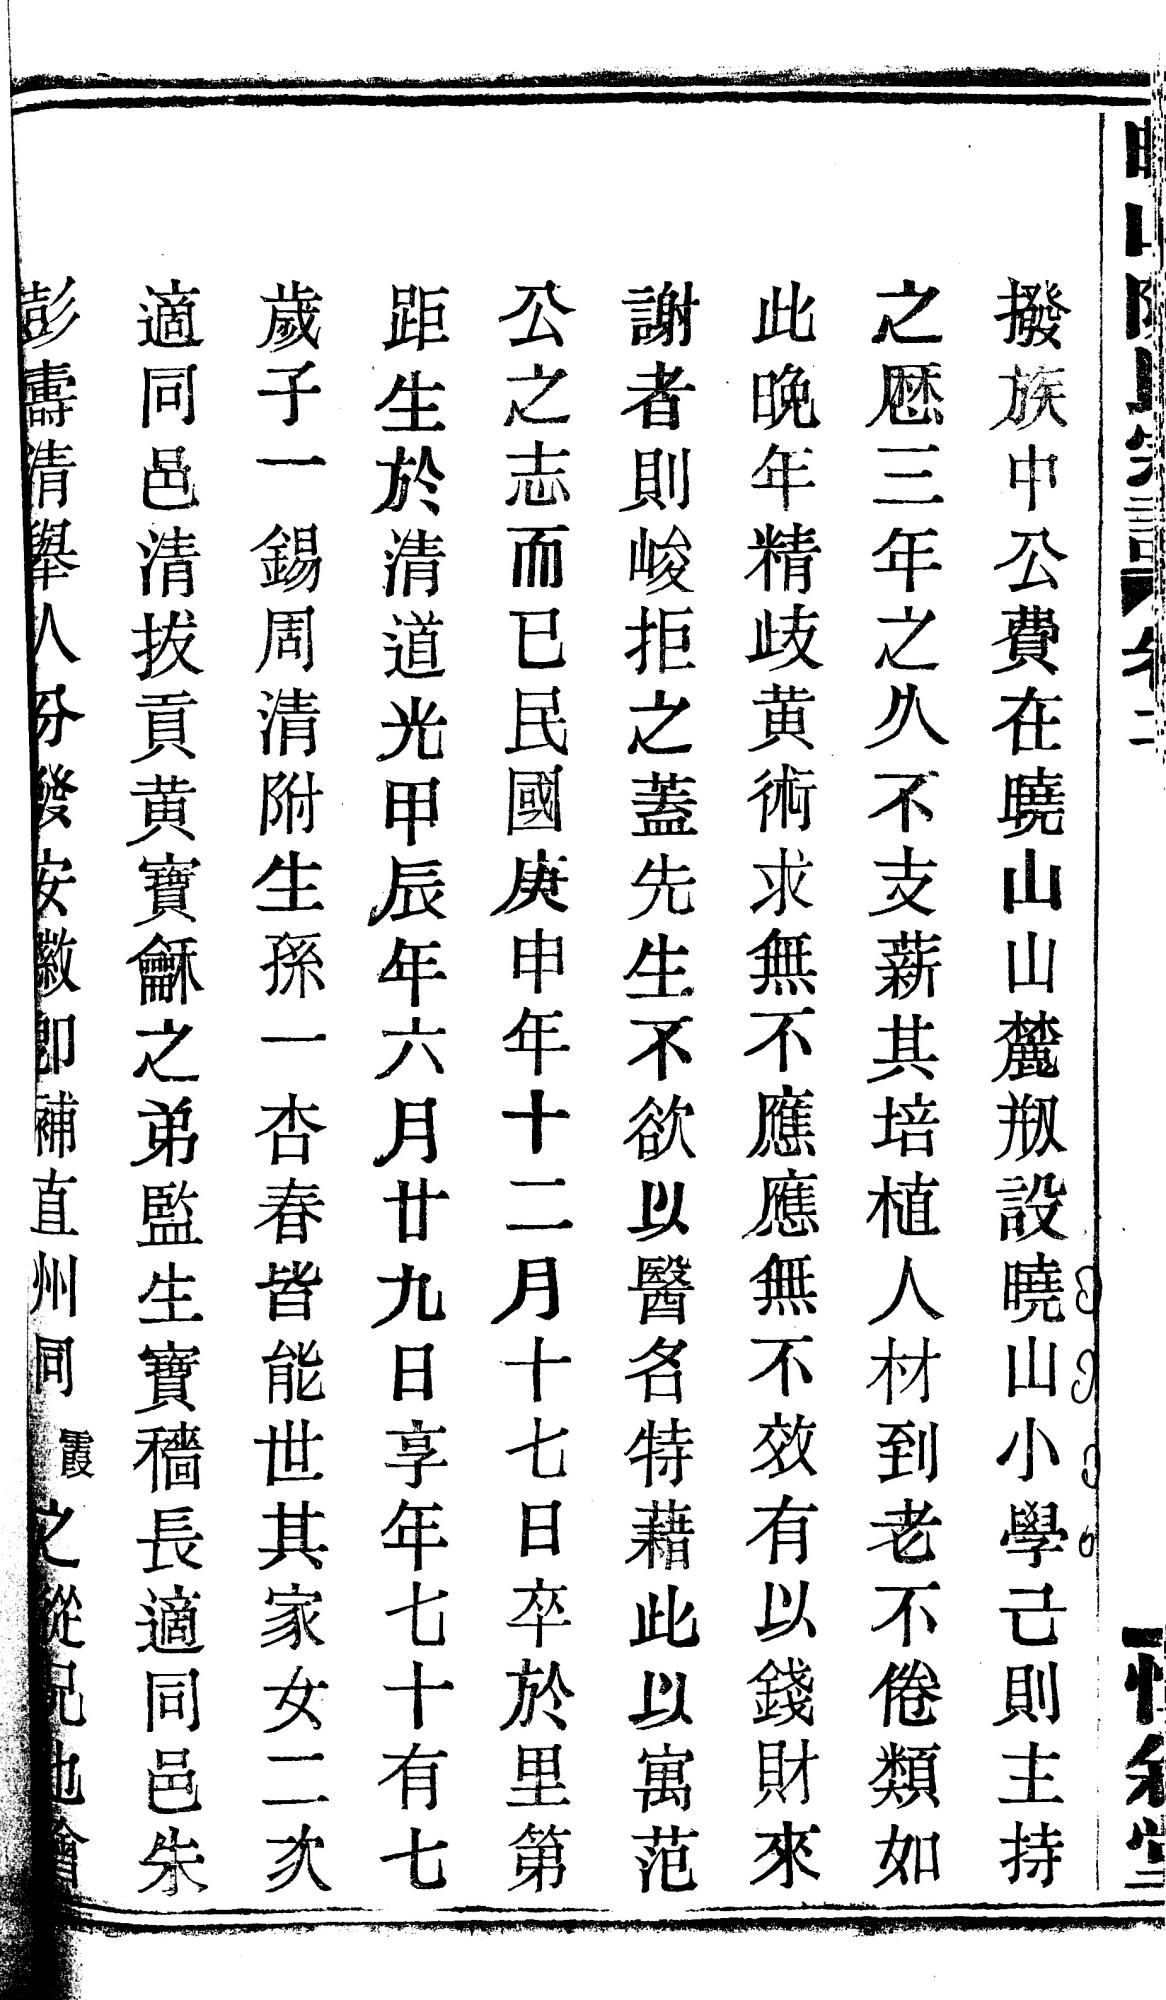 撥族中公費在曉山山麓剏設曉山小學己則主持
之歷三年之久不支薪其培植人材到老不倦類如
此晚年精歧黄術求無不應應無不效有以錢財來
謝者則峻拒之蓋先生不欲以醫名特藉此以寓范
公之志而已民國庚申年十二月十七日卒於里第
距生於清道光甲辰年六月廿九日享年七十有七
歲子一錫周清附生孫一杏春皆能世其家女二次
適同邑清拔貢黄寶龢之弟監生寶穡長適同邑朱
彭壽清舉人分發安徽卽補直州同霞之從兄也繪